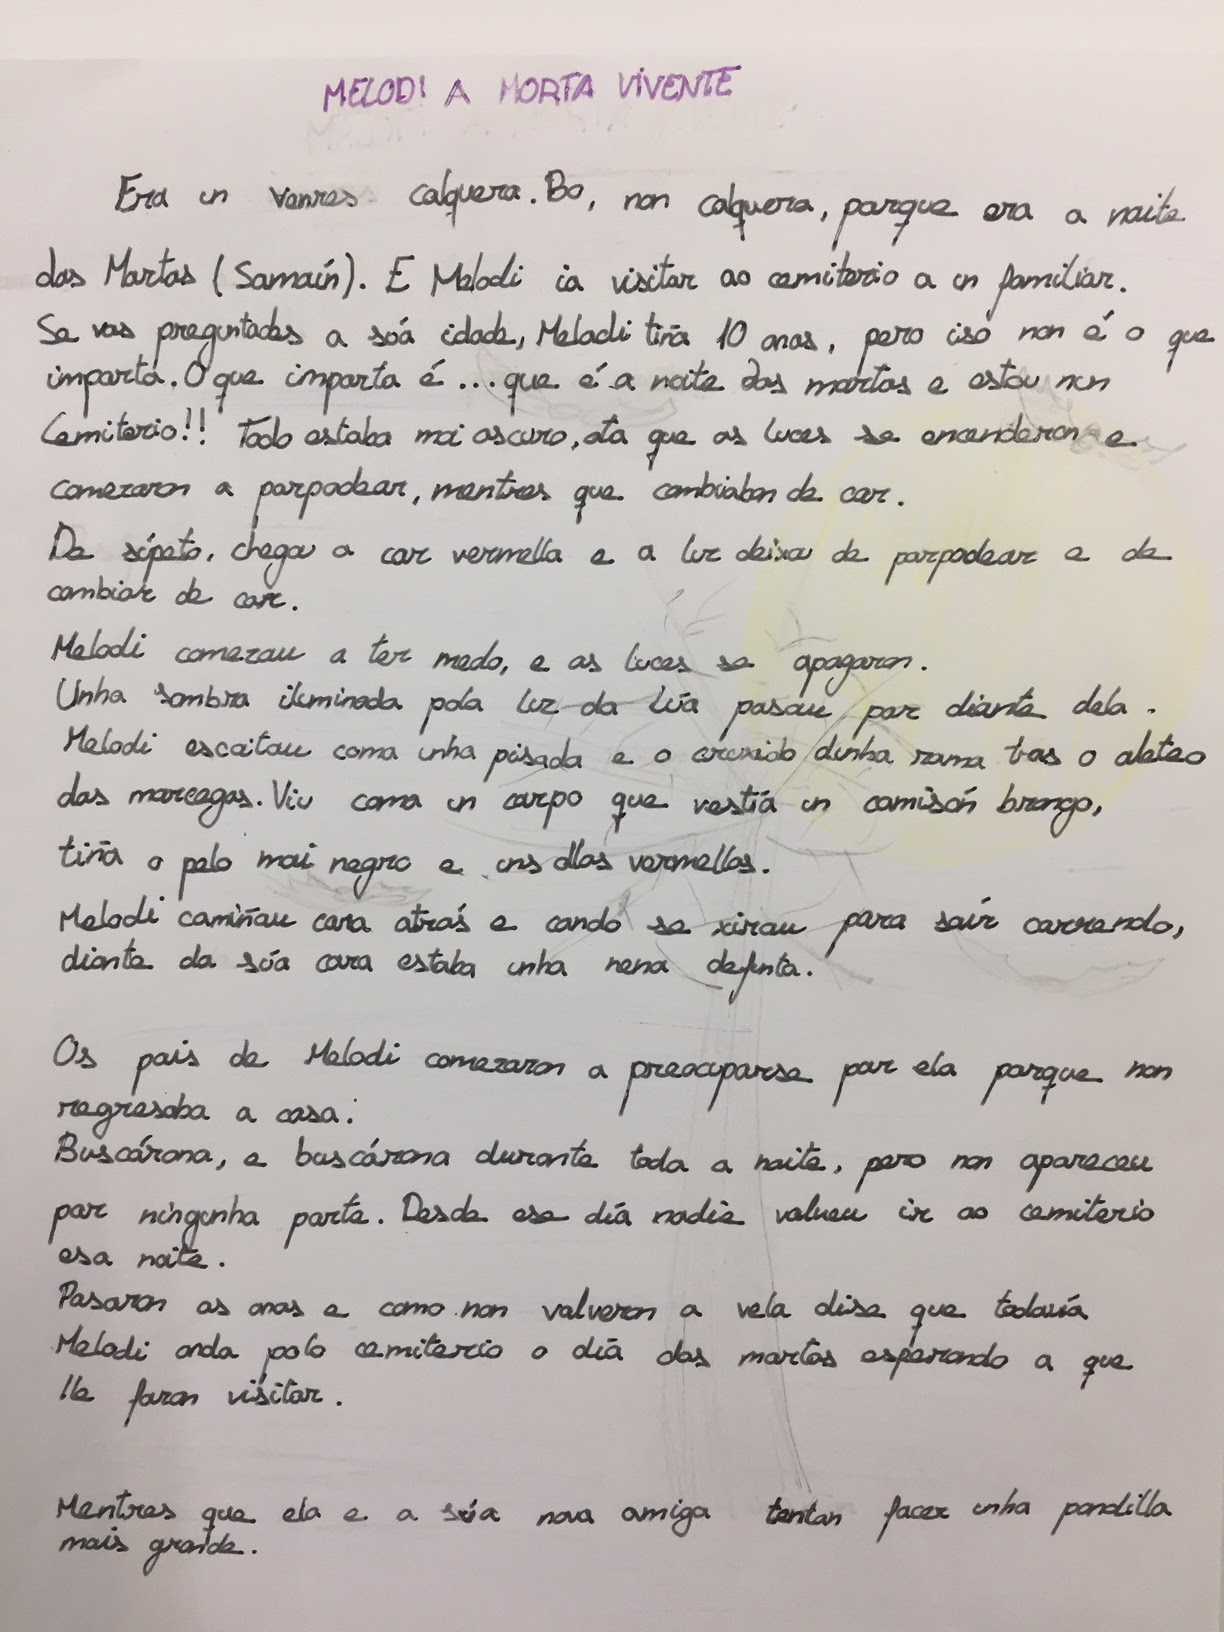 MELODI A MORTA VIVENTE
Era un venres calquera. Bo, non calquera, porque era a noite
dos Mortos (Samaín). E Melodi ia visitar ao cemiterio a un familiar.
Se vos preguntades a súa idade, Melodi tiña 10 anos, pero iso non é o que
importa. O que importa é ... que é a noite dos mortos e estou nun
Cemiterio!! Todo estaba moi oscuro, ata que as luces se encenderon e
comezaron a parpadear, mentres que cambiaban de cor.
De súpeto, chegou a cor vermella e a luz deixou de parpadear e de
cambiar de cor.
Melodi comezou a ter medo, e as luces se apagaron.
Unha sombra iluminada pola luz da lúa pasou por diante dela.
Melodi escoitou coma unha pisada e o cruxido dunha rama tras o aleteo
dos morcegos. Viu coma un corpo que vestía un camisón brango,
tiña o pelo moi negro e uns ollos vermellos.
Melodi camiñou cara atrás e cando se xirou para saír correndo,
diante da súa cara estaba unha nena defunta.
Os pais de Melodi comezaron a preocuparse por ela porque non
regresaba a casa.
Buscárona, e buscárona durante toda a noite, pero non apareceu
por ningunha parte. Desde ese día nadie volveu ir ao cemiterio
esa noite.
Pasaron os anos e como non volveron a vela dise que todavía
Melodi anda polo cemiterio o día dos mortos esperando a que
lle foron visitar.
Mentres que ela e a súa nova amiga tentan facer unha pandilla
mais grande.